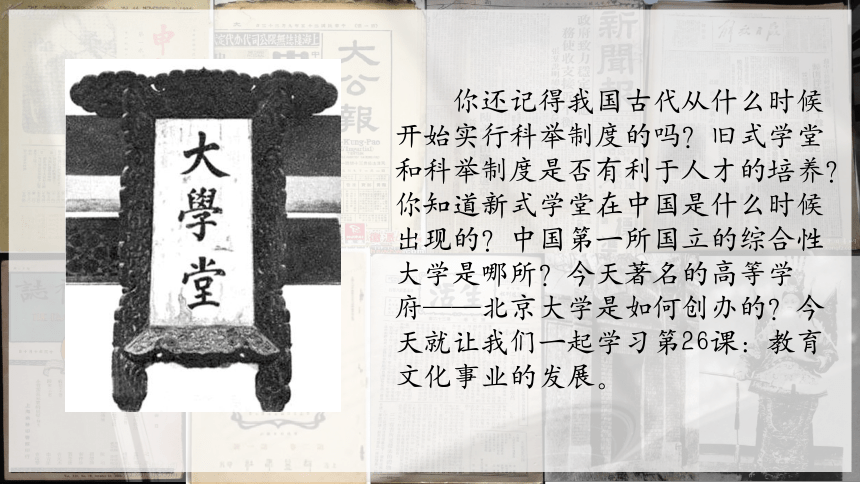 大學堂
你还记得我国古代从什么时候
开始实行科举制度的吗？旧式学堂
和科举制度是否有利于人才的培养？
你知道新式学堂在中国是什么时候
出现的？中国第一所国立的综合性
大学是哪所？今天著名的高等学
府——北京大学是如何创办的？今
天就让我们一起学习第26课：教育
文化事业的发展。
大公報
新聞報
申